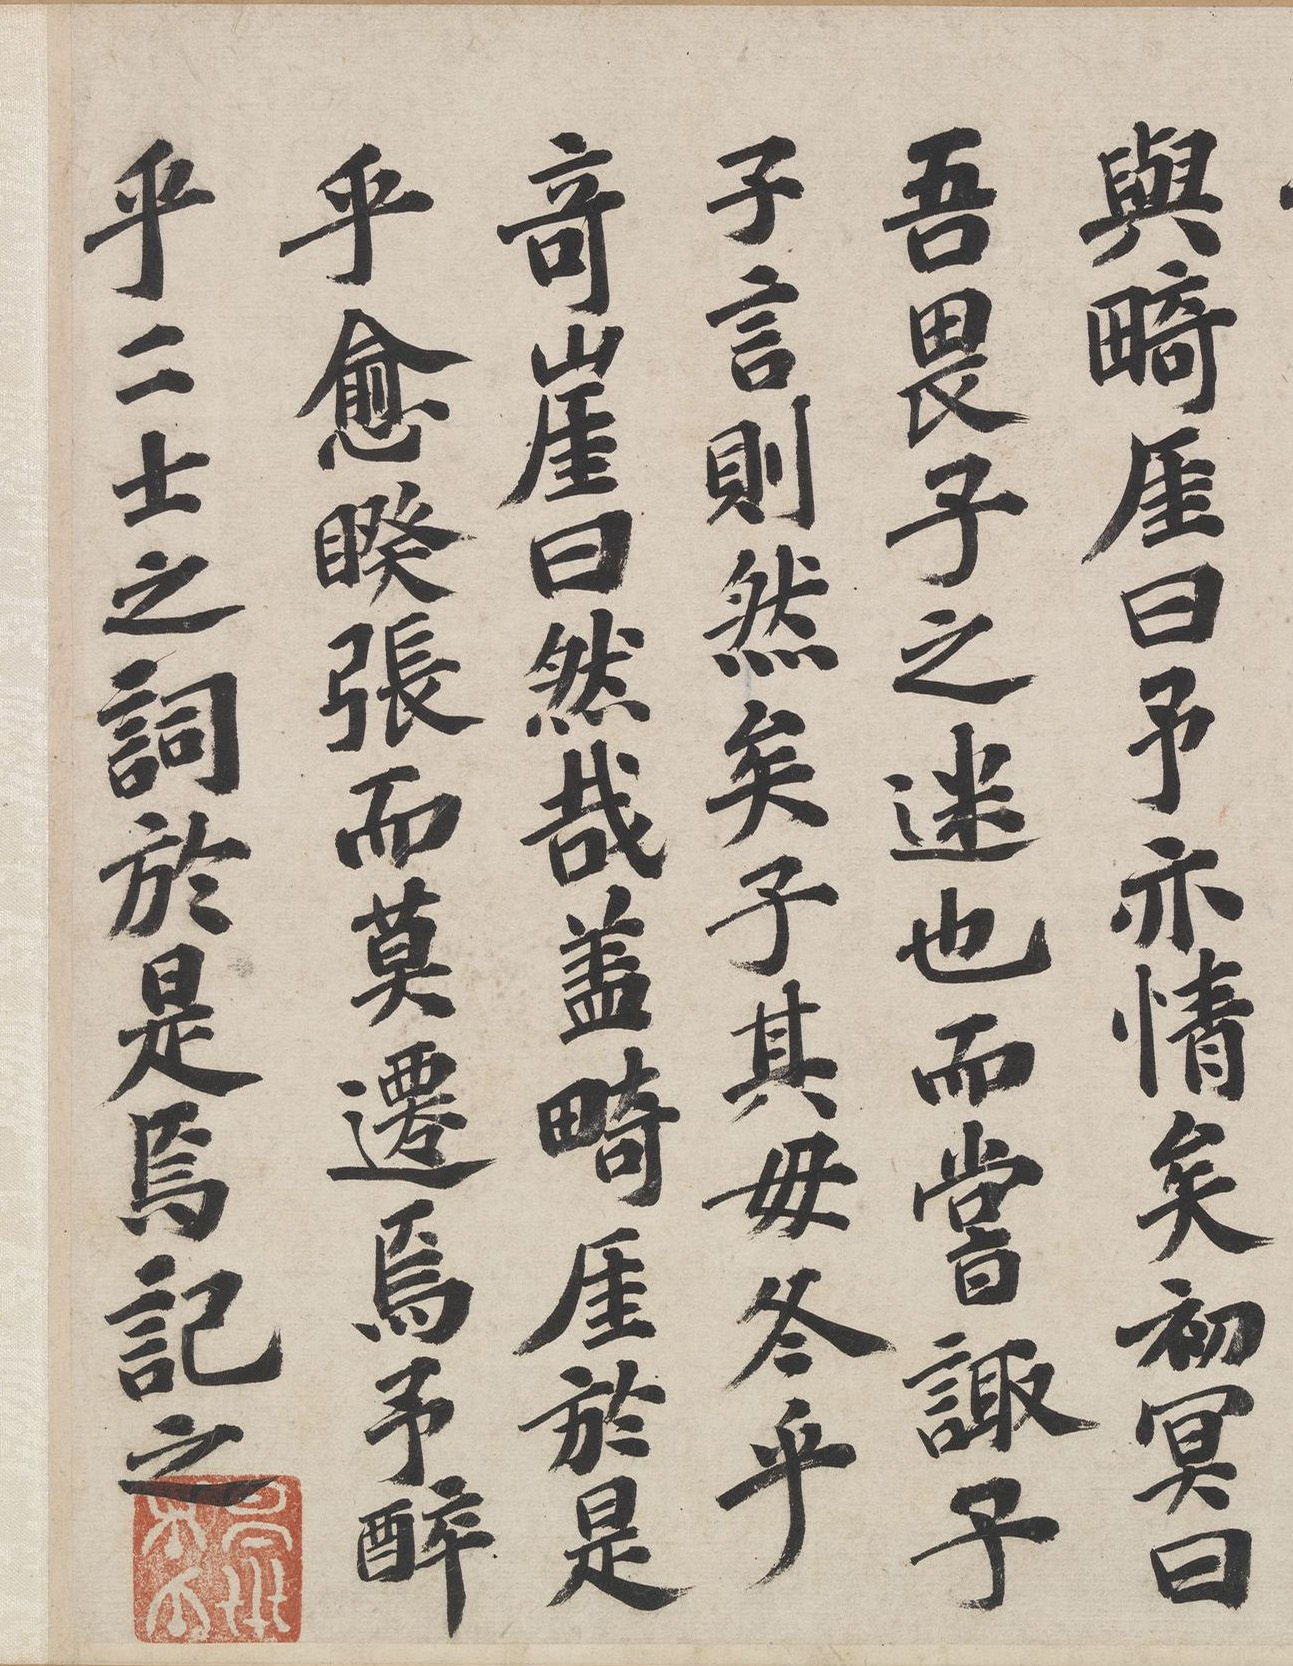 與畸厓曰予亦情矣初冥曰
吾畏子之迷也而嘗諏子
子言則然矣子其毋冬乎
竒崖曰然哉盖畸厓於是
乎愈睽張而莫遷焉予醉
乎二士之詞於是焉記之